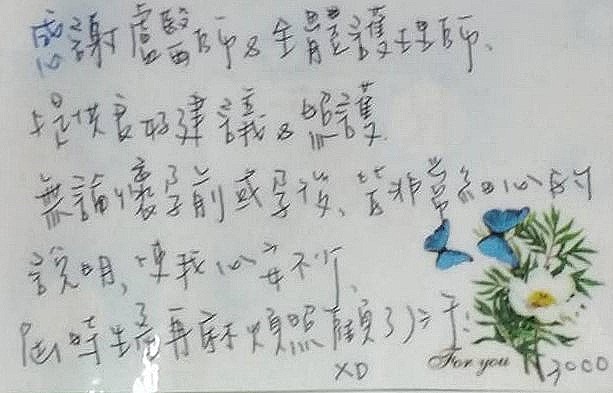 感謝盧醫師&全體護理師、
提供良好建議&照護
無論懷孕前或孕後、皆非常細心的
說明,使我心安不少、
屆時生產再麻煩照顧了
XD
For you
3000